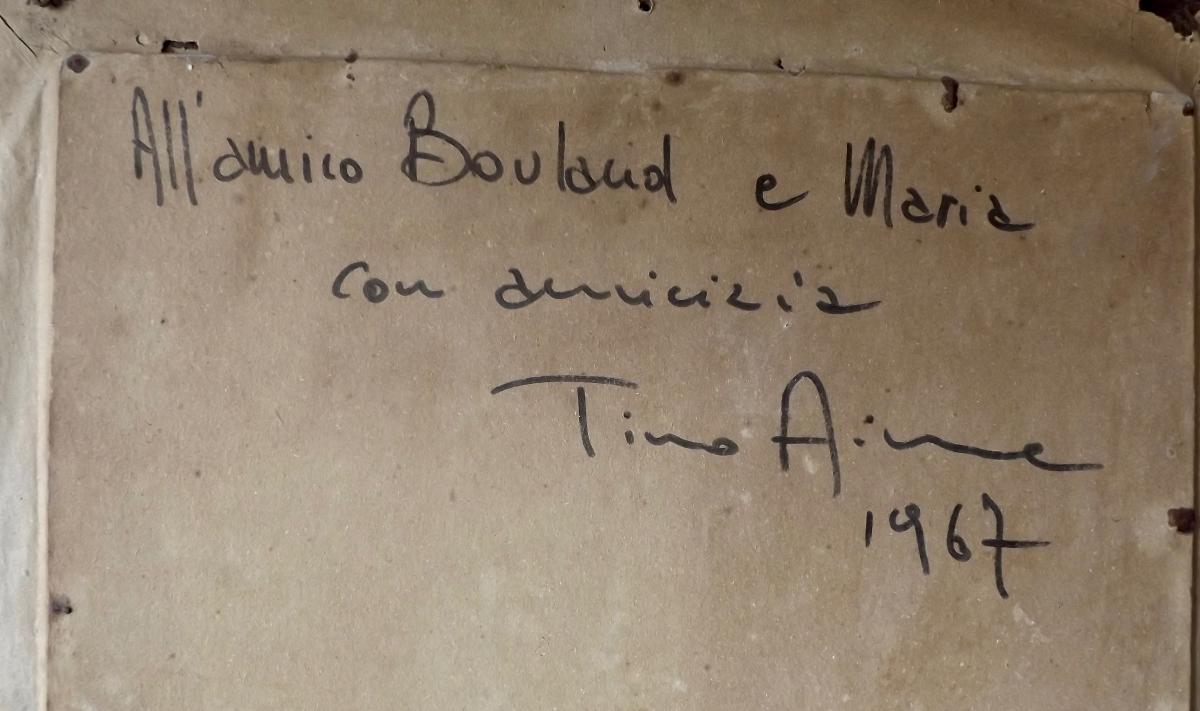 All'amico Bouland e Maria
con amicizia
Tino Aime
1967